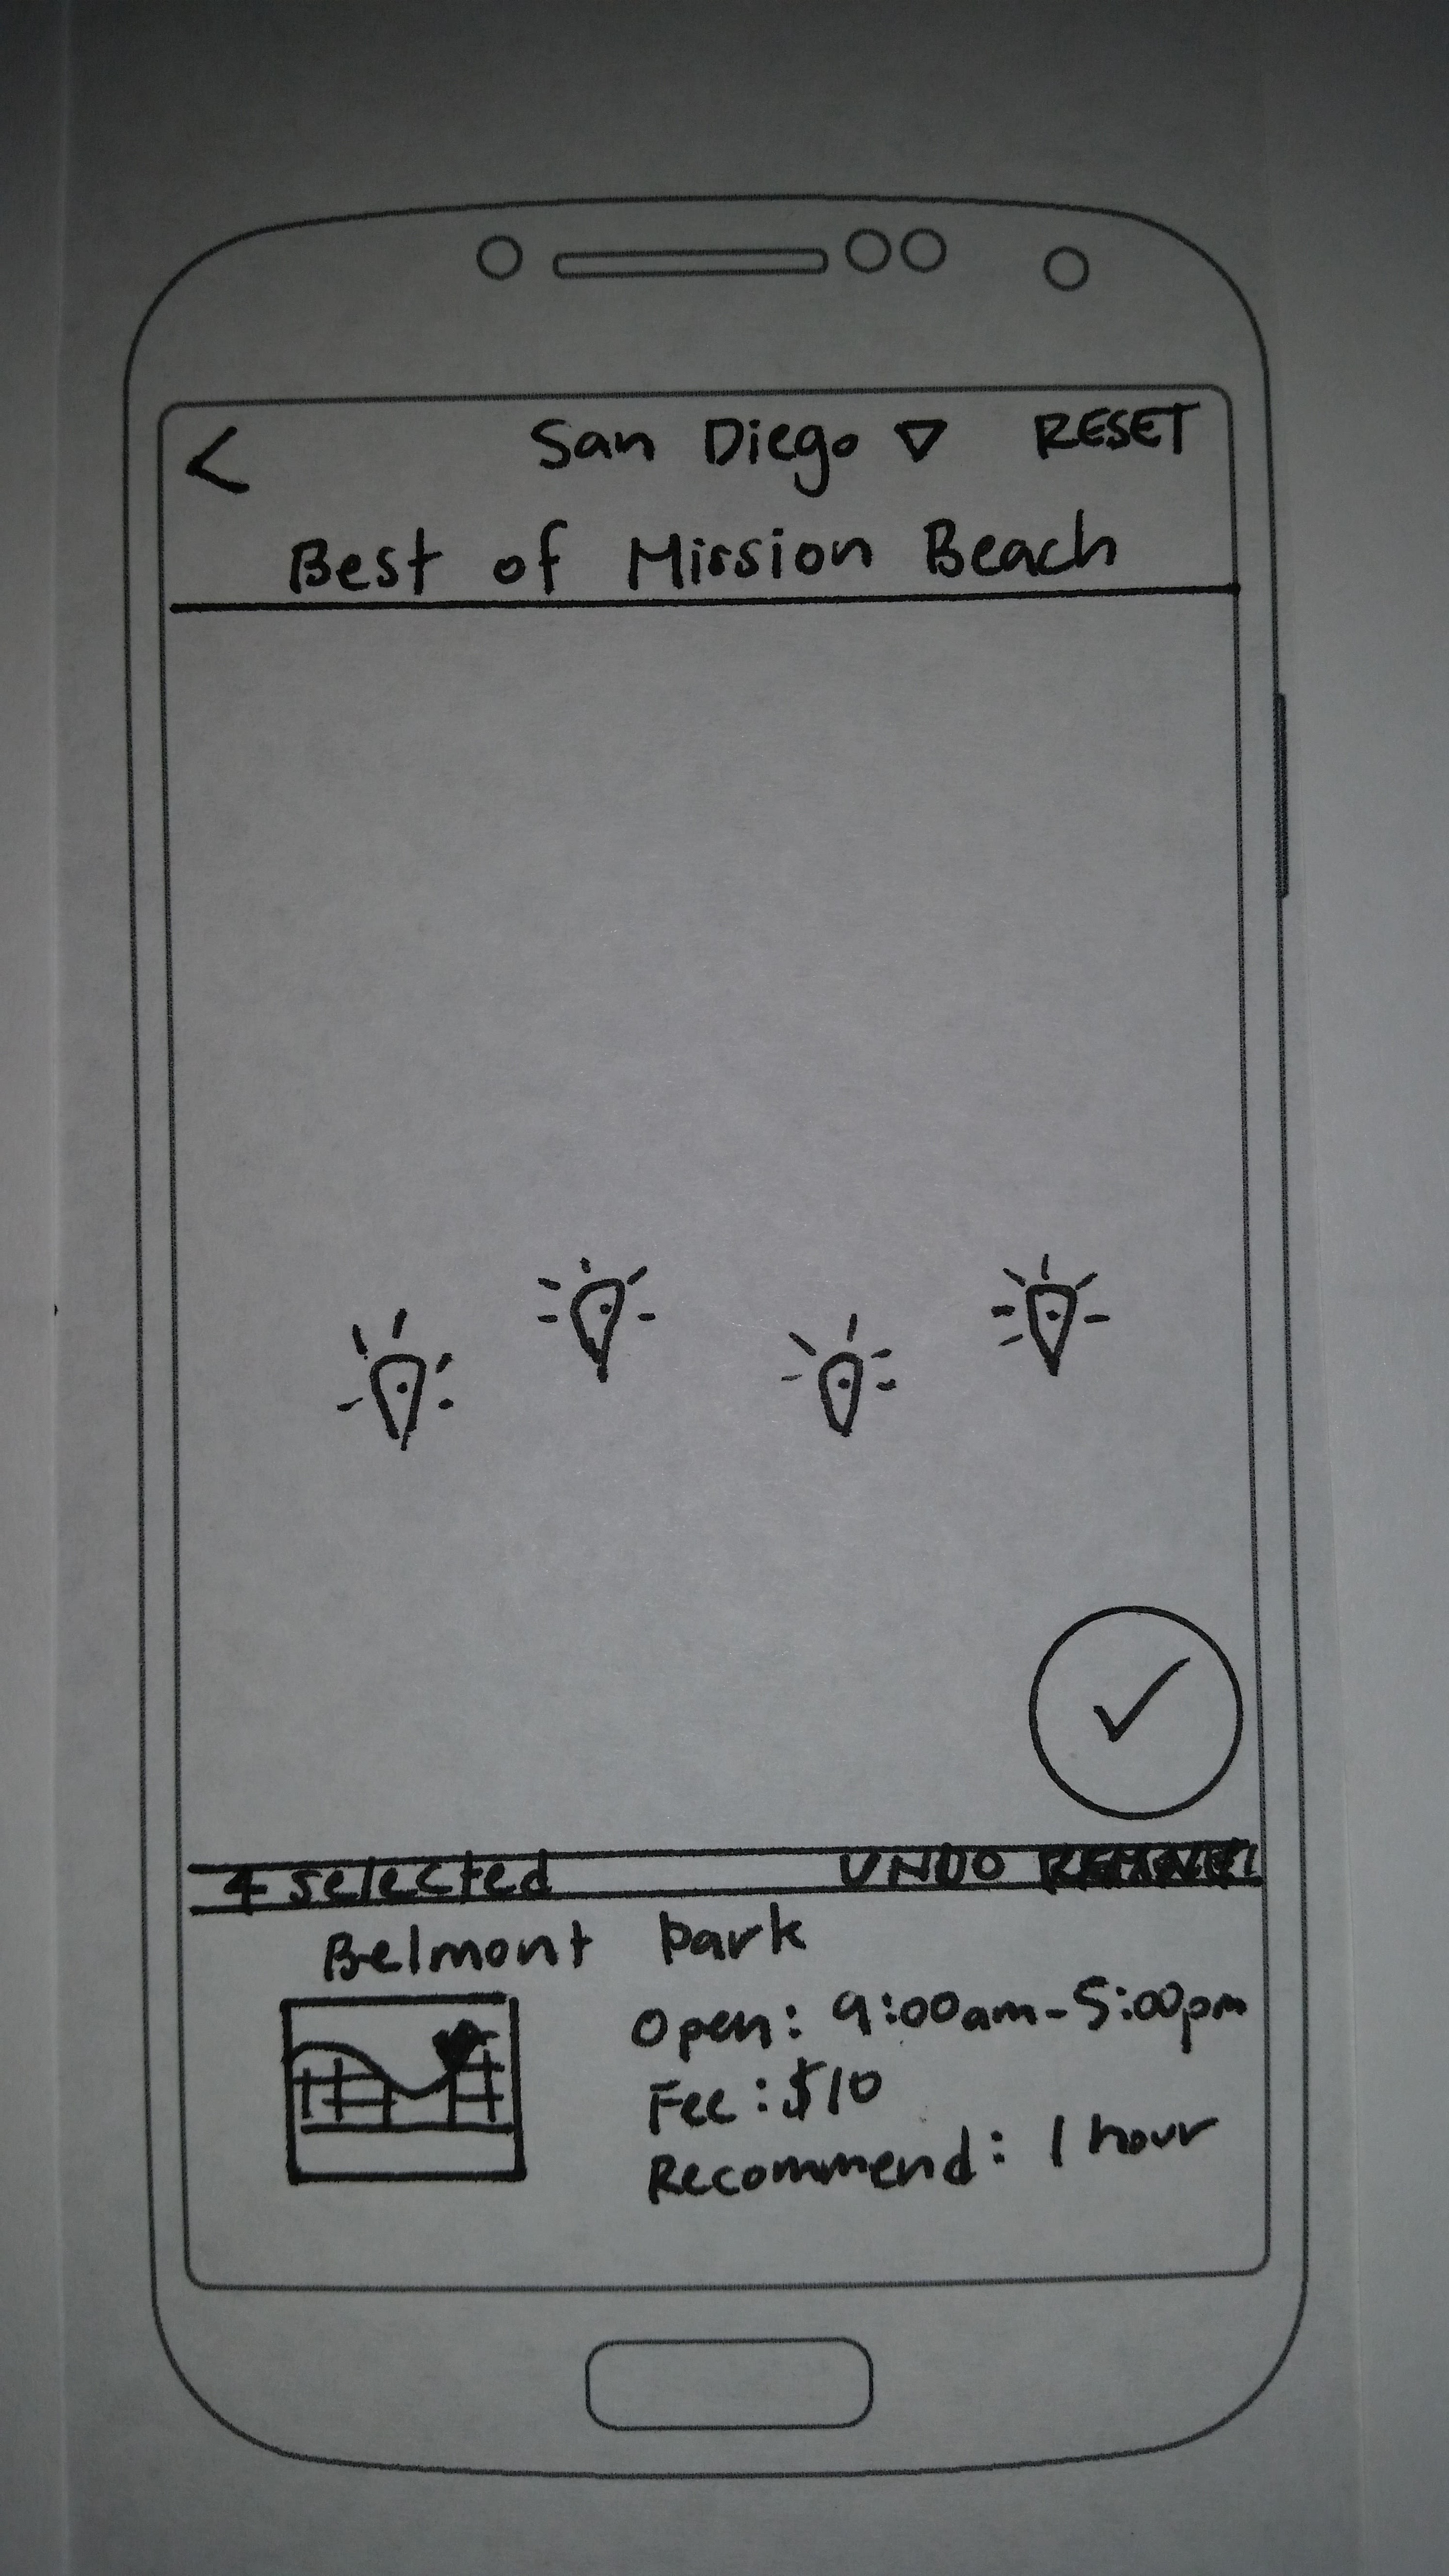 < San Diego ▽ RESET
Best of Mission Beach
4 selected UNDO
Belmont Park
Open: 9:00am-5:00pm
Fee: $10
Recommend: 1 hour